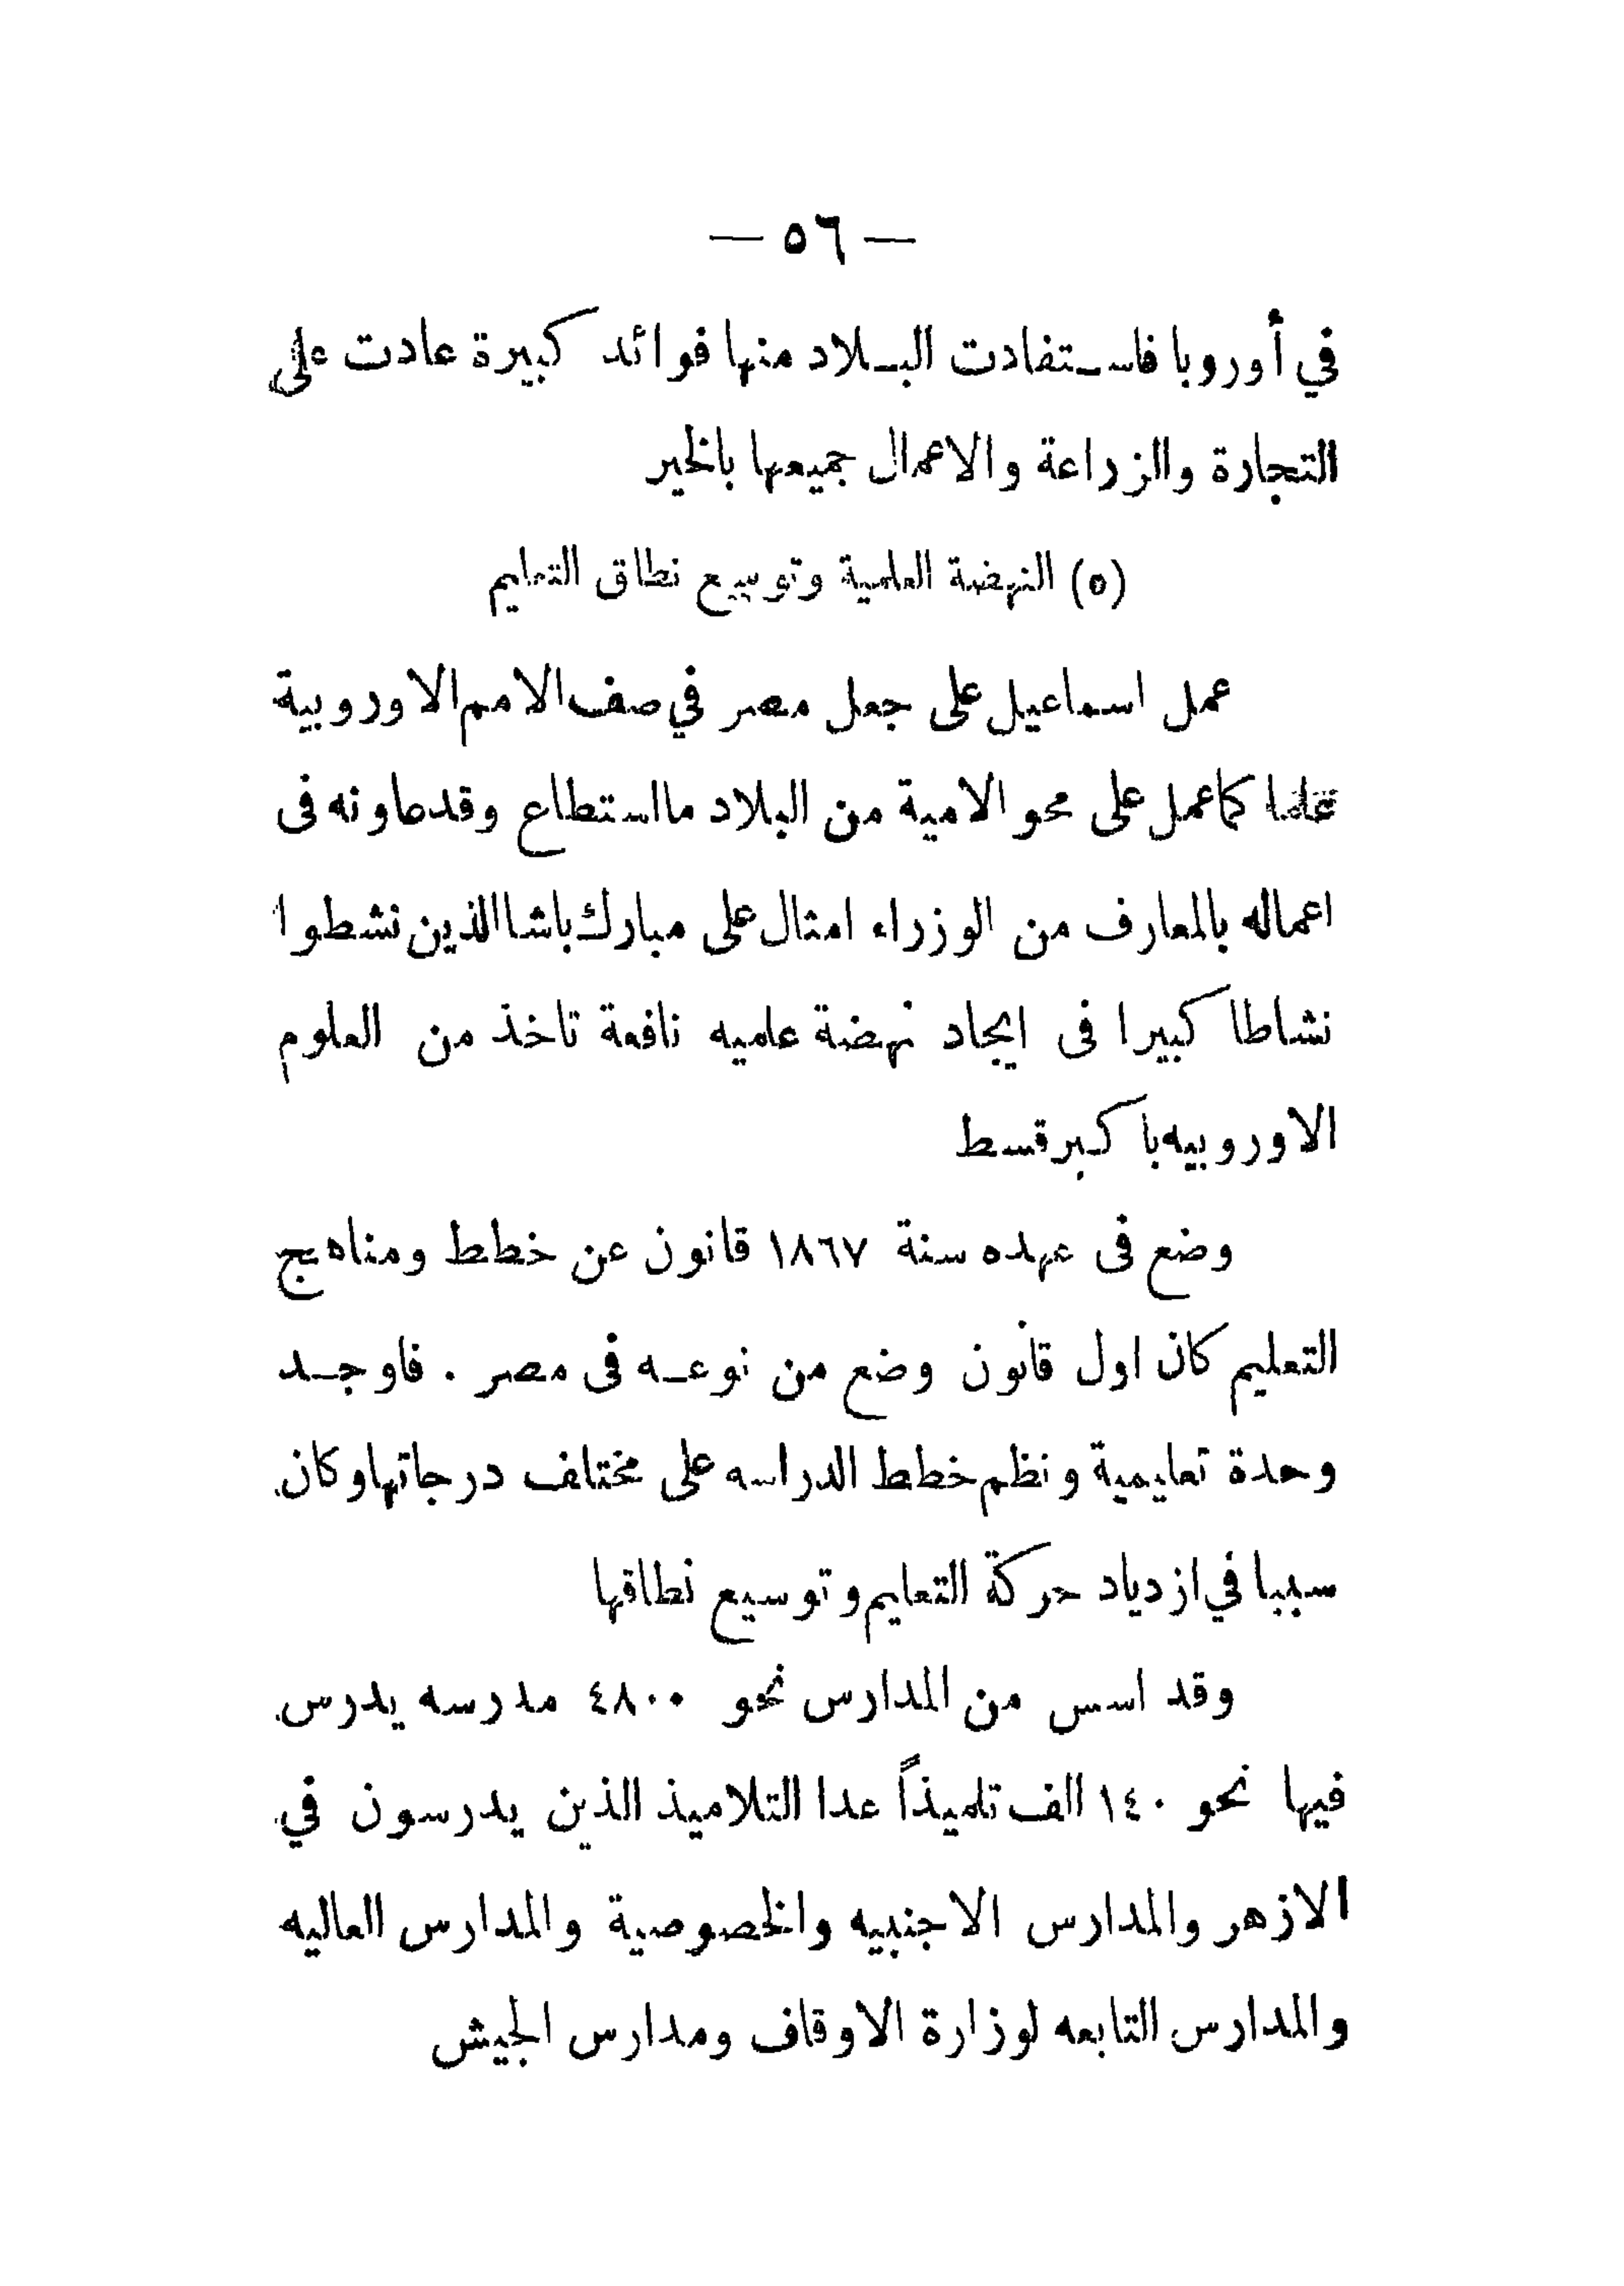 — ٥٦ —
في أوروبا فاستفادت البلاد منها فوائد كبيرة عادت على
التجارة والزراعة والاعمال جميعها بالخير
(٥) النهضة العلمية وتوسيع نطاق التعليم
عمل اسماعيل على جعل مصر في صف الامم الاوروبية
كما عمل على محو الامية من البلاد ما استطاع وقد عاونه فى
اعماله بالمعارف من الوزراء امثال على مبارك باشا الذين نشطوا
نشاطا كبيرا فى ايجاد نهضة علميه نافعة تاخذ من العلوم
الاوروبيه باكبر قسط
وضع فى عهده سنة ١٨٦٧ قانون عن خطط ومناهج
التعليم كان اول قانون وضع من نوعه فى مصر . فاوجد
وحدة تعليمية ونظم خطط الدراسه على مختلف درجاتها وكان
سببا في ازدياد حركة التعليم وتوسيع نطاقها
وقد اسس من المدارس نحو ٤٨٠٠ مدرسه يدرس
فيها نحو ١٤٠ الف تلميذاً عدا التلاميذ الذين يدرسون في
الازهر والمدارس الاجنبيه والخصوصية والمدارس العاليه
والمدارس التابعه لوزارة الاوقاف ومدارس الجيش